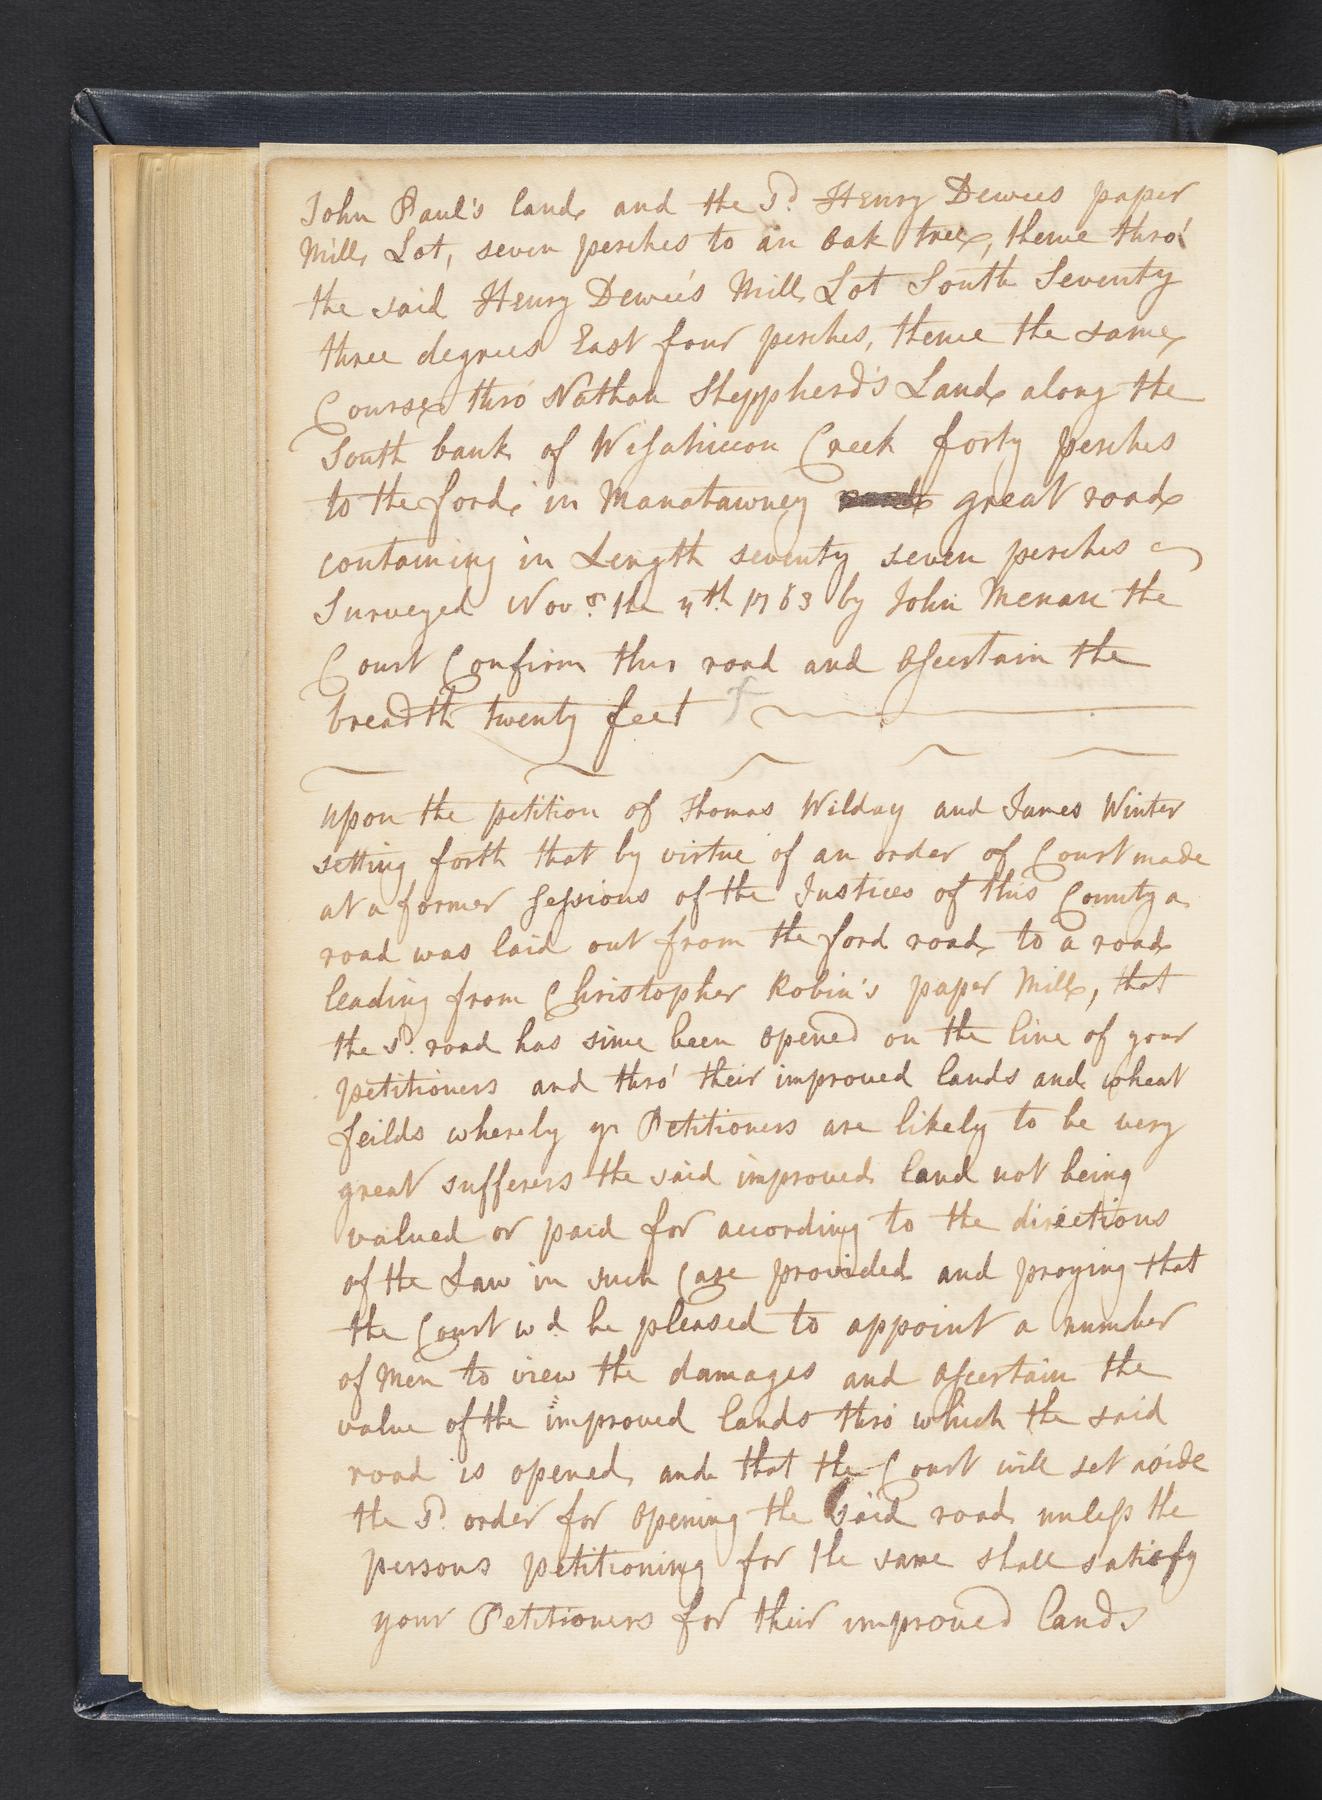 John Paul's land and the Sd. Henry Dewees paper
Mill Lot, seven perches to an oak tree, thence thro'
the said Henry Dewees's Mill Lot South Seventy
three degrees East four perches, thence the same
Course thro' Nathan Sheppherd's Land along the
South bank of Wissahiccon Creek forty perches
to the ford in Manatawney great road
containing in Length seventy seven perches
Surveyed Novr. the 4th. 1763 by John the
Court Confirm this road and ascertain the
breadth twenty feet
Upon the petition of Thomas Wilday and James Winter
setting forth that by virtue of an order of Court made
at a former Sessions of the Justices of this County a
road was laid out from the ford road to a road
leading from Christopher Robin's paper Mill, that
the sd. road has since been opened on the line of your
petitioners and thro' their improved lands and wheat
feilds whereby yr Petitioners are likely to be very
great sufferers the said improved land not being
valued or paid for according to the directions
of the Law in such Case provided and praying that
the Court wd. be pleased to appoint a number
of Men to view the damages and ascertain the
value of the improved lands thro' which the said
road is opened, and that the Court will set aside
the Sd. order for opening the said road unless the
persons petitioning for the same shall satisfy
your Petitioners for their improved lands